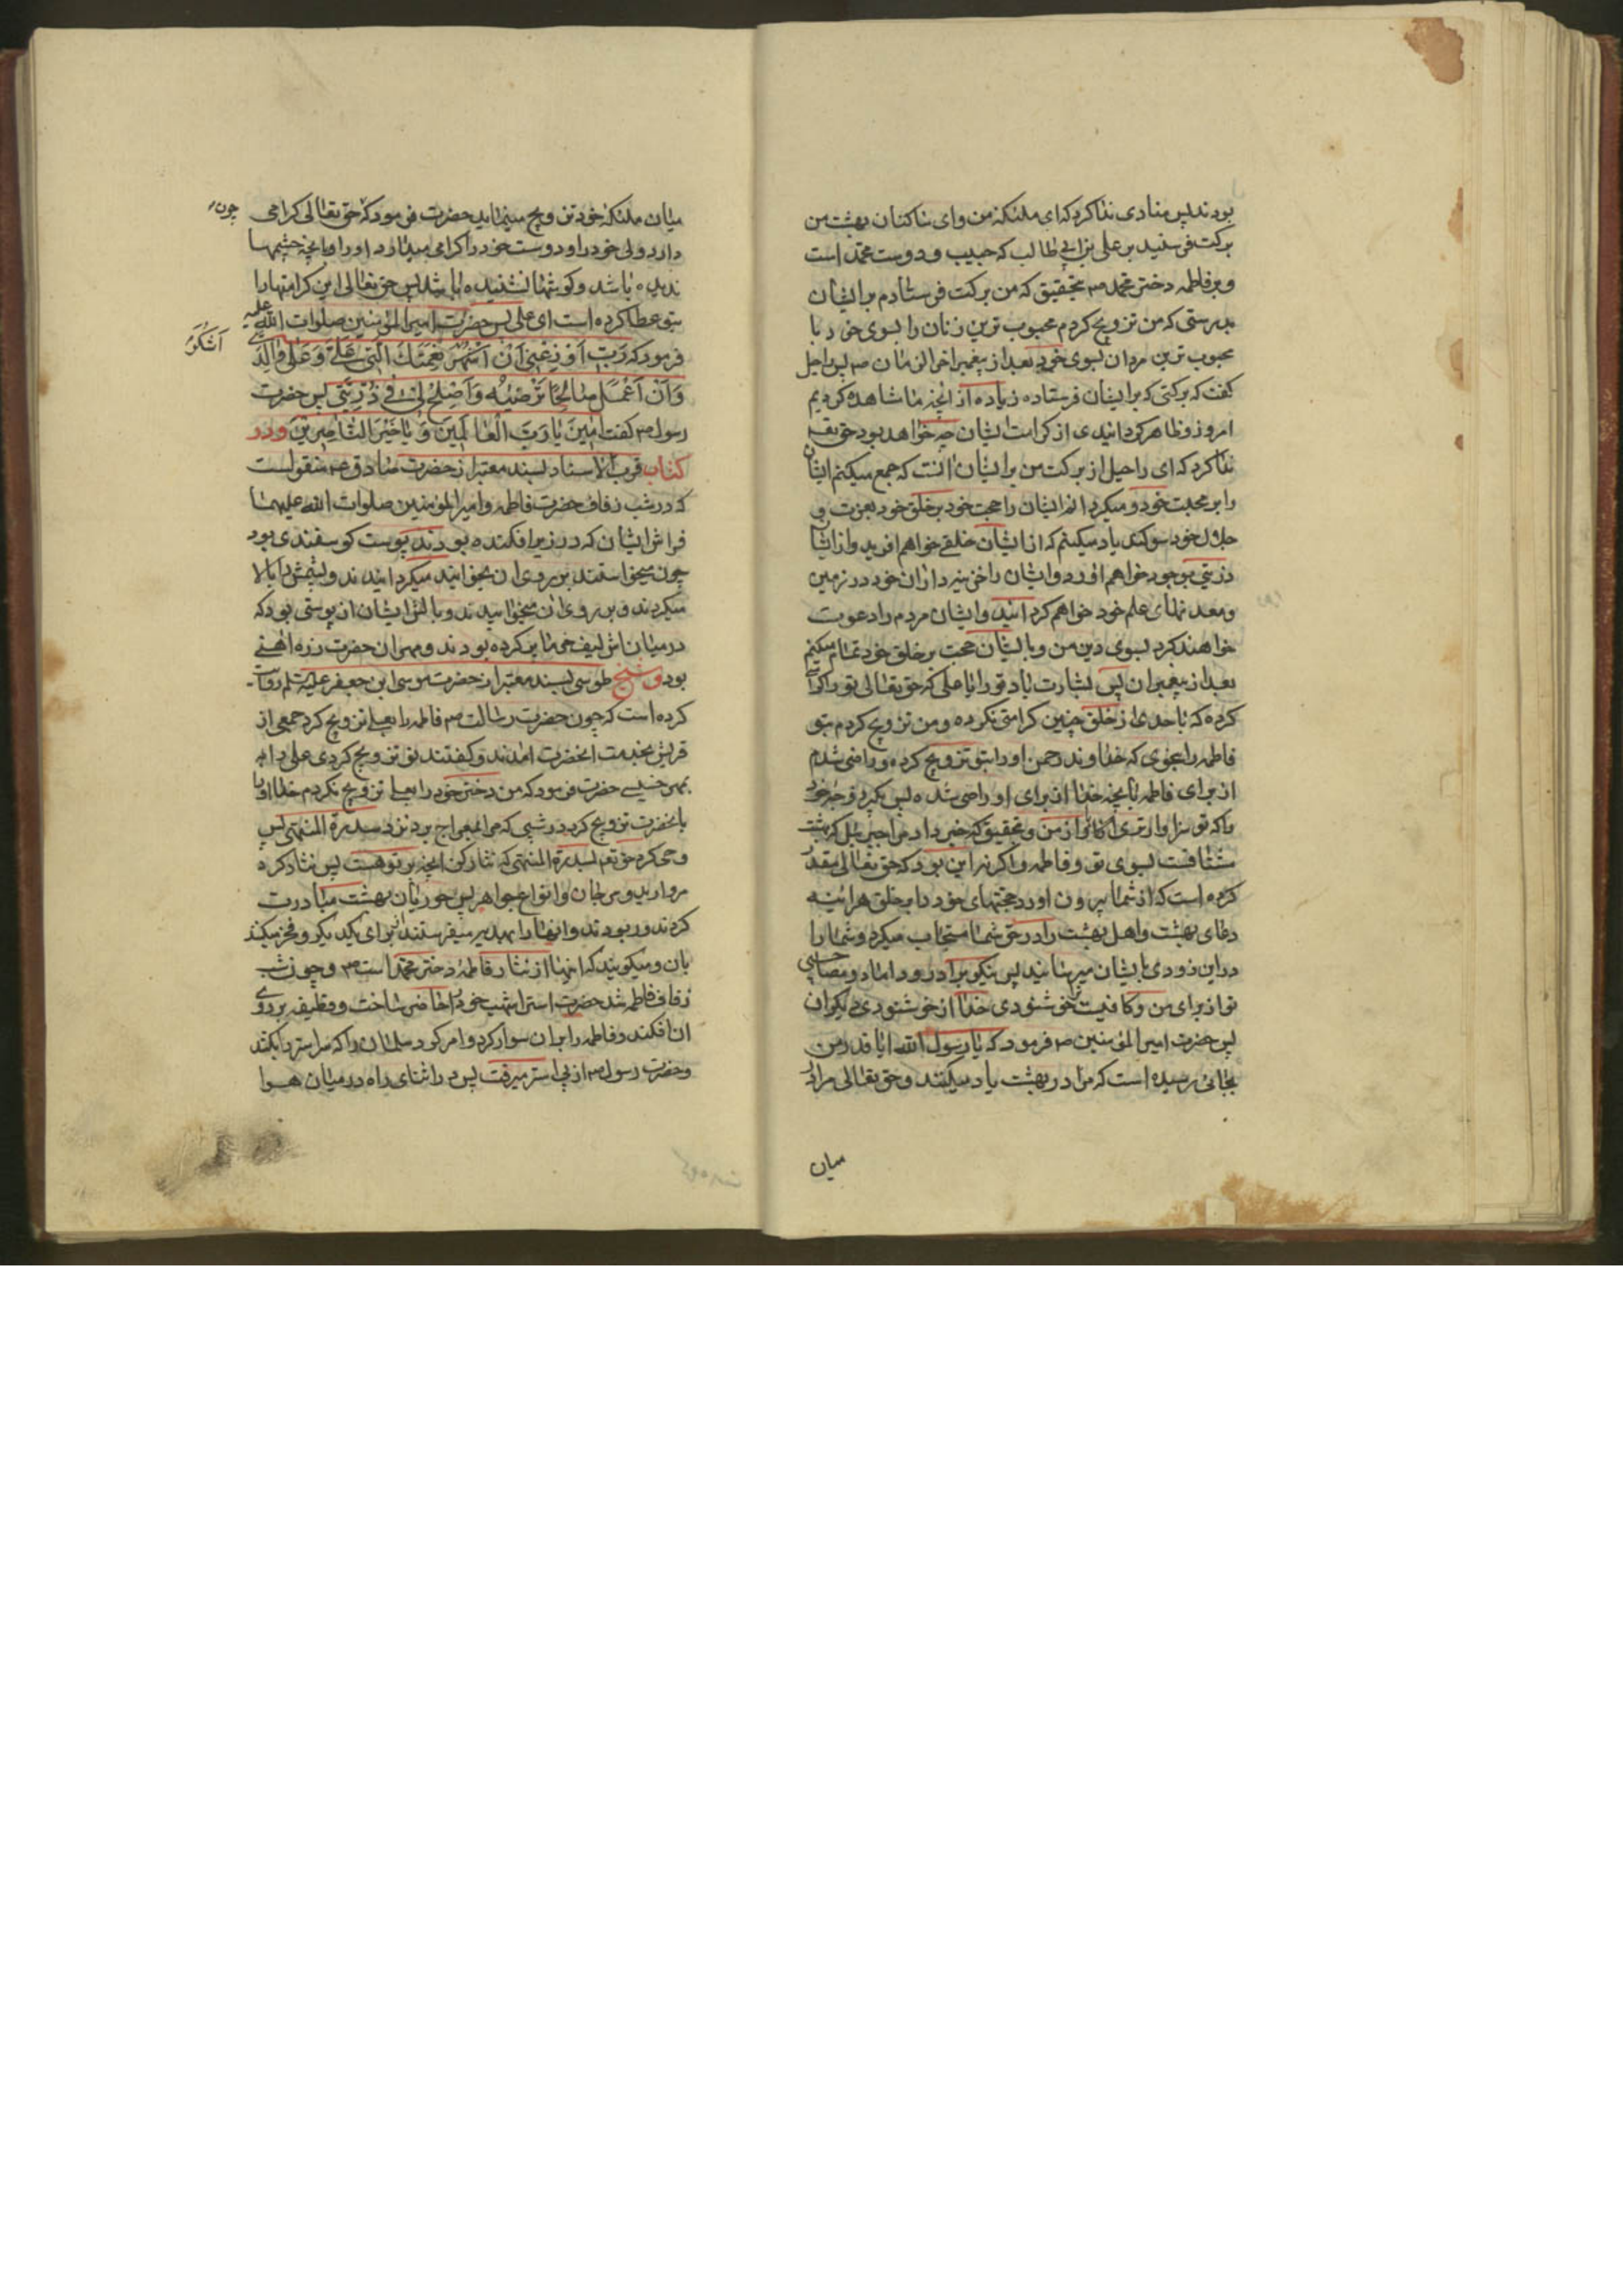 بودند پس منادی ندا کرد که ای ملئکهٔ من و ای ساکنان بهشت من
برکت فرستید بر علی بن ابی طالب که حبیب و دوست محمد است
و بر فاطمه دختر محمد ص بتحقیق که من برکت فرستادم بر ایشان
بدرستی که من تزویج کردم محبوب ترین زنان را بسوی خود با
محبوب ترین مردان بسوی خود بعد از پیغمبر اخر الزمان ص پس راحیل
گفت که برکتی که بر ایشان فرستاده زیاده از آنچه ما مشاهده کردیم
امروز و ظاهر کردانیدی از کرامت ایشان چه خواهد بود حق تعه
ندا کرد که ای راحیل از برکت من بر ایشان انست که جمع میکنم ایشان
را بر محبت خود و میگردانم ایشان را حجت خود بر خلق خود بعزت و
جلال خود سوکند یاد میکنم که از ایشان خلقی خواهم افرید و از ایشان
ذریتی بوجود خواهم اورد و ایشان را خزینه داران خود در زمین
و معدنهای علم خود خواهم کردانید و ایشان مردم را دعوت
خواهند کرد بسوی دین من و با ایشان حجت بر خلق خود تمام میکنم
بعد از پیغمبران پس بشارت باد تو را یا علی که حق تعالی تو را کرامتی
کرده که با احدی از خلق چنین کرامتی نکرده و من تزویج کردم بتو
فاطمه را بنحوی که خداوند رحمن او را بتو تزویج کرده و راضی شدم
از برای فاطمه بانچه خدا از برای او راضی شده پس بگیر زوجه خود
را که تو سزاوارتری از من و بتحقیق که خبر داد مرا جبرئیل که بهشت
مشتاقست بسوی تو و فاطمه و اگر نه این بود که حق تعالی مقدر
کرده است که از شما بیرون اورد حجتهای خود را بر خلق هر اینه
دعای بهشت و اهل بهشت را در حق شما مستجاب میکرد و شما را
در این زودی با ایشان میرسانید پس نیکو برادر و داماد و مصاحبی
تو از برای من و کافیست خوشنودی خدا از خوشنودی دیگران
پس حضرت امیر المؤمنین ص فرمود که یا رسول الله ایا قدر من
بجائی رسیده است که مرا در بهشت یاد میکنند و حق تعالی مرا در
میان
میان ملئکهٔ خود تزویج مینماید حضرت فرمود که حق تعالی کرامی چون
دارد ولی خود را و دوست خود را کرامی میدارد او را بانچه چشمها
ندیده باشد و کوشها نشنیده باشد پس حق تعالی این کرامتها را
بتو عطا کرده است ای علی پس حضرت امیر المؤمنین صلوات الله علیه
فرمود که رَبِّ اَوْزِعْنی اَنْ اَشْکُرَ نِعْمَتَکَ الَّتی اَنْعَمْتَ عَلَیَّ وَ عَلی والِدَیَّ
اَشْکُرَ
وَ اَنْ اَعْمَلَ صالِحًا تَرْضیهُ وَ اَصْلِحْ لی فی ذُرِّیَّتی پس حضرت
رسول ص کفت امینَ یا رَبَّ الْعالَمینَ وَ یا خَیْرَ النّاصِرینَ و در
کتاب قرب الاسناد بسند معتبر از حضرت صادق ع منقولست
که در شب زفاف حضرت فاطمه و امیر المؤمنین صلوات الله علیهما
فراش ایشان که در زیر افکنده بودند پوست کوسفندی بود
چون میخواستند بر روی ان بخوابند میکردانیدند و پشمش را بالا
میکردند و بر روی ان میخوابیدند و بالش ایشان از پوستی بود که
در میانش لیف خرما پر کرده بودند و مهر ان حضرت زره اهنی
بود و شیخ طوسی بسند معتبر از حضرت موسی ابن جعفر علیه السلم روایت
کرده است که چون حضرت رسالت ص فاطمه را بعلی تزویج کرد جمعی از
قریش بخدمت انحضرت امدند و کفتند تو تزویج کردی علی را
بمهر خسیسی حضرت فرمود که من دختر خود را بعلی تزویج نکردم خدا او را
بانحضرت تزویج کرد در شبی که مرا بمعراج برد نزد سدرة المنتهی پس
وحی کرد حق تعه بسدرة المنتهی که نثار کن انچه بر تو هست پس نثار کرد
مروارید و مرجان و انواع جواهر پس حوریان بهشت مبادرت
کردند و ربودند و انها را بهدیه میفرستند از برای یکدیکر و فخر میکنند
بان و میکویند که اینها از نثار فاطمه دختر محمد است ص و چون شب
زفاف فاطمه شد حضرت استر اشهب خود را حاضر ساخت و قطیفه بر روی
ان افکند و فاطمه را بر ان سوار کرد و امر کرد سلمان را که سر استر را بکشد
و حضرت رسول ص از پی استر میرفت پس در اثنای راه در میان هوا